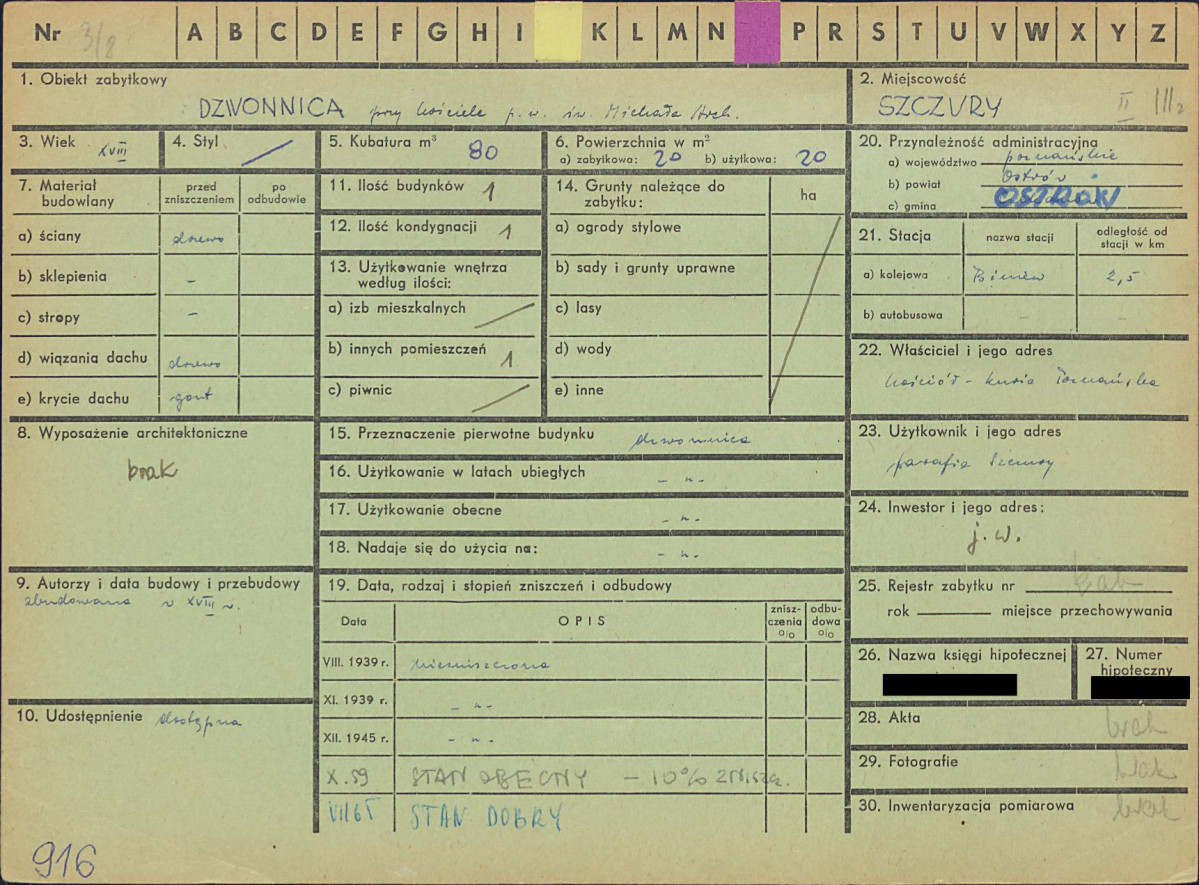 Nr 3/8 A B C D E F G H I K L M N P R S T U V W X Y Z
1. Obiekt zabytkowy
DZWONNICA przy kościele p.w. św. Michała Arch.
2. Miejscowość
SZCZURY II III2
3. Wiek XVIII
4. Styl
5. Kubatura m³ 80
6. Powierzchnia w m²
a) zabytkowa: 20 b) użytkowa: 20
7. Materiał budowlany
przed zniszczeniem
po odbudowie
a) ściany drzewo
b) sklepienia -
c) stropy -
d) wiązania dachu drzewo
e) krycie dachu gont
8. Wyposażenie architektoniczne
brak
9. Autorzy i data budowy i przebudowy
zbudowana w XVIII w.
10. Udostępnienie dostępna
11. Ilość budynków 1
12. Ilość kondygnacji 1
13. Użytkowanie wnętrza
według ilości:
a) izb mieszkalnych
b) innych pomieszczeń 1
c) piwnic
14. Grunty należące do
zabytku:
ha
a) ogrody stylowe
b) sady i grunty uprawne
c) lasy
d) wody
e) inne
15. Przeznaczenie pierwotne budynku dzwonnica
16. Użytkowanie w latach ubiegłych - „ -
17. Użytkowanie obecne - „ -
18. Nadaje się do użycia na: - „ -
19. Data, rodzaj i stopień zniszczeń i odbudowy
Data
OPIS
znisz-
czenia
%
odbu-
dowa
%
VIII. 1939 r. niezniszczona
XI. 1939 r. - „ -
XII. 1945 r. - „ -
X.59 STAN OBECNY - 10% zniszcz.
VII 65 STAN DOBRY
20. Przynależność administracyjna
a) województwo poznańskie
b) powiat Ostrów
c) gmina OSTRÓW
21. Stacja
nazwa stacji
odległość od
stacji w km
a) kolejowa Biniew 2,5
b) autobusowa - -
22. Właściciel i jego adres
kościół - kuria Poznańska
23. Użytkownik i jego adres
parafia Szczury
24. Inwestor i jego adres:
j. w.
25. Rejestr zabytku nr brak
rok miejsce przechowywania
26. Nazwa księgi hipotecznej
27. Numer
hipoteczny
28. Akta brak
29. Fotografie brak
30. Inwentaryzacja pomiarowa brak
916